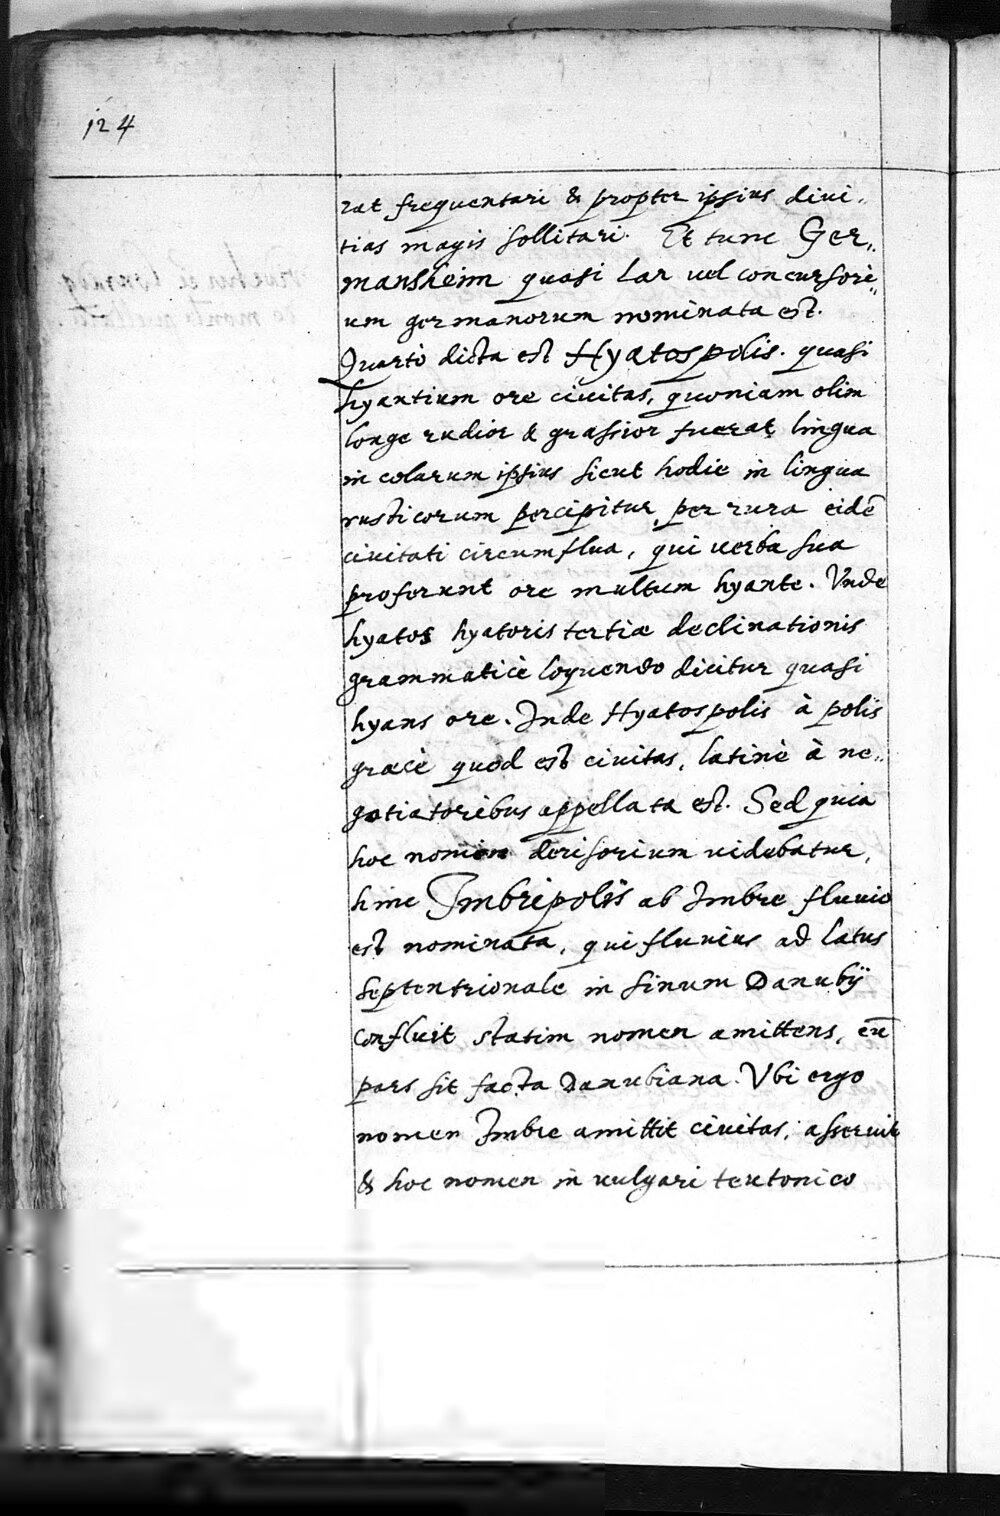 124
rat frequentari & propter ipsius diui„
tias magis sollitari. Et tunc Ger„
mansheim quasi Lar uel concursori„
um germanorum nominata est.
Quartò dicta est Hyatospolis. quasi
hyantium ore ciuitas, quoniam olim
longe rudior & grassior fuerat lingua
in colarum ipsius sicut hodie in lingua
rusticorum percipitur, per rura eidē
ciuitati circumflua, qui uerba sua
proferunt ore multum hyante. Vnde
hyatos hyatoris tertiæ declinationis
grammaticè loquendo dicitur quasi
hyans ore. Inde Hyatospolis à polis
græcè quod est ciuitas, latinè à ne„
gotiatoribus appellata est. Sed quia
hoc nomen derisorium uidebatur,
hinc Imbripolis ab Imbre fluuio
est nominata, qui fluuius ad latus
septentrionale in sinum Danubij
confluit statim nomen amittens, cū
pars sit facta Danubiana. Vbi ergo
nomen Imbre amittit ciuitas, asseruit
& hoc nomen in uulgari teutonico